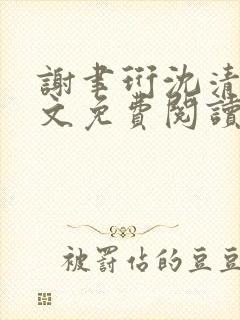 謝書珩沈清
文免費閱讀
被罰佔的豆豆